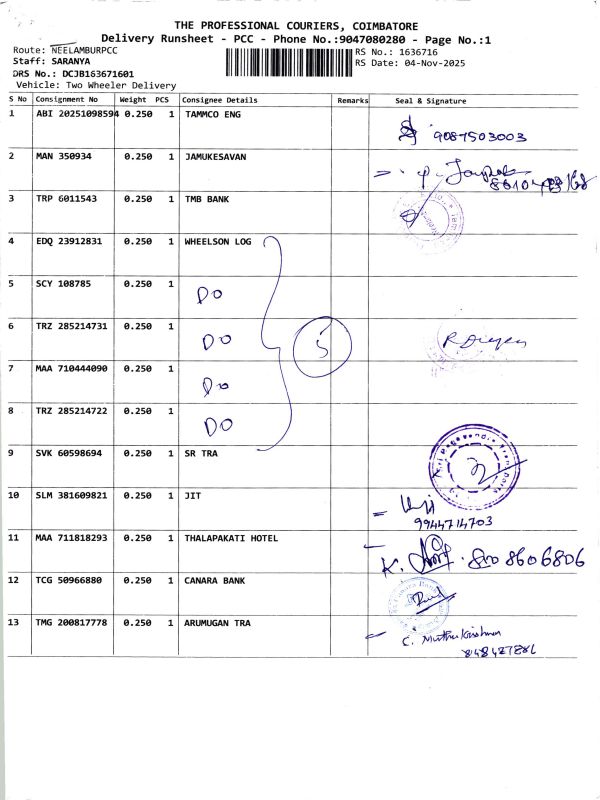 THE PROFESSIONAL COURIERS, COIMBATORE
Delivery Runsheet - PCC - Phone No.:9047080280 - Page No.:1
Route: NEELAMBURPCC
RS No.: 1636716
Staff: SARANYA
RS Date: 04-Nov-2025
DRS No.: DCJB163671601
Vehicle: Two Wheeler Delivery
S No Consignment No Weight PCS Consignee Details Remarks Seal & Signature
1 ABI 20251098594 0.250 1 TAMMCO ENG
9087503003
2 MAN 350934 0.250 1 JAMUKESAVAN
3 TRP 6011543 0.250 1 TMB BANK
4 EDQ 23912831 0.250 1 WHEELSON LOG
5 SCY 108785 0.250 1 DO
6 TRZ 285214731 0.250 1 DO
5
7 MAA 710444090 0.250 1 DO
8 TRZ 285214722 0.250 1 DO
9 SVK 60598694 0.250 1 SR TRA
10 SLM 381609821 0.250 1 JIT
9944714703
11 MAA 711818293 0.250 1 THALAPAKATI HOTEL
K. 8608606806
12 TCG 50966880 0.250 1 CANARA BANK
13 TMG 200817778 0.250 1 ARUMUGAN TRA
C. Muthukrishnan